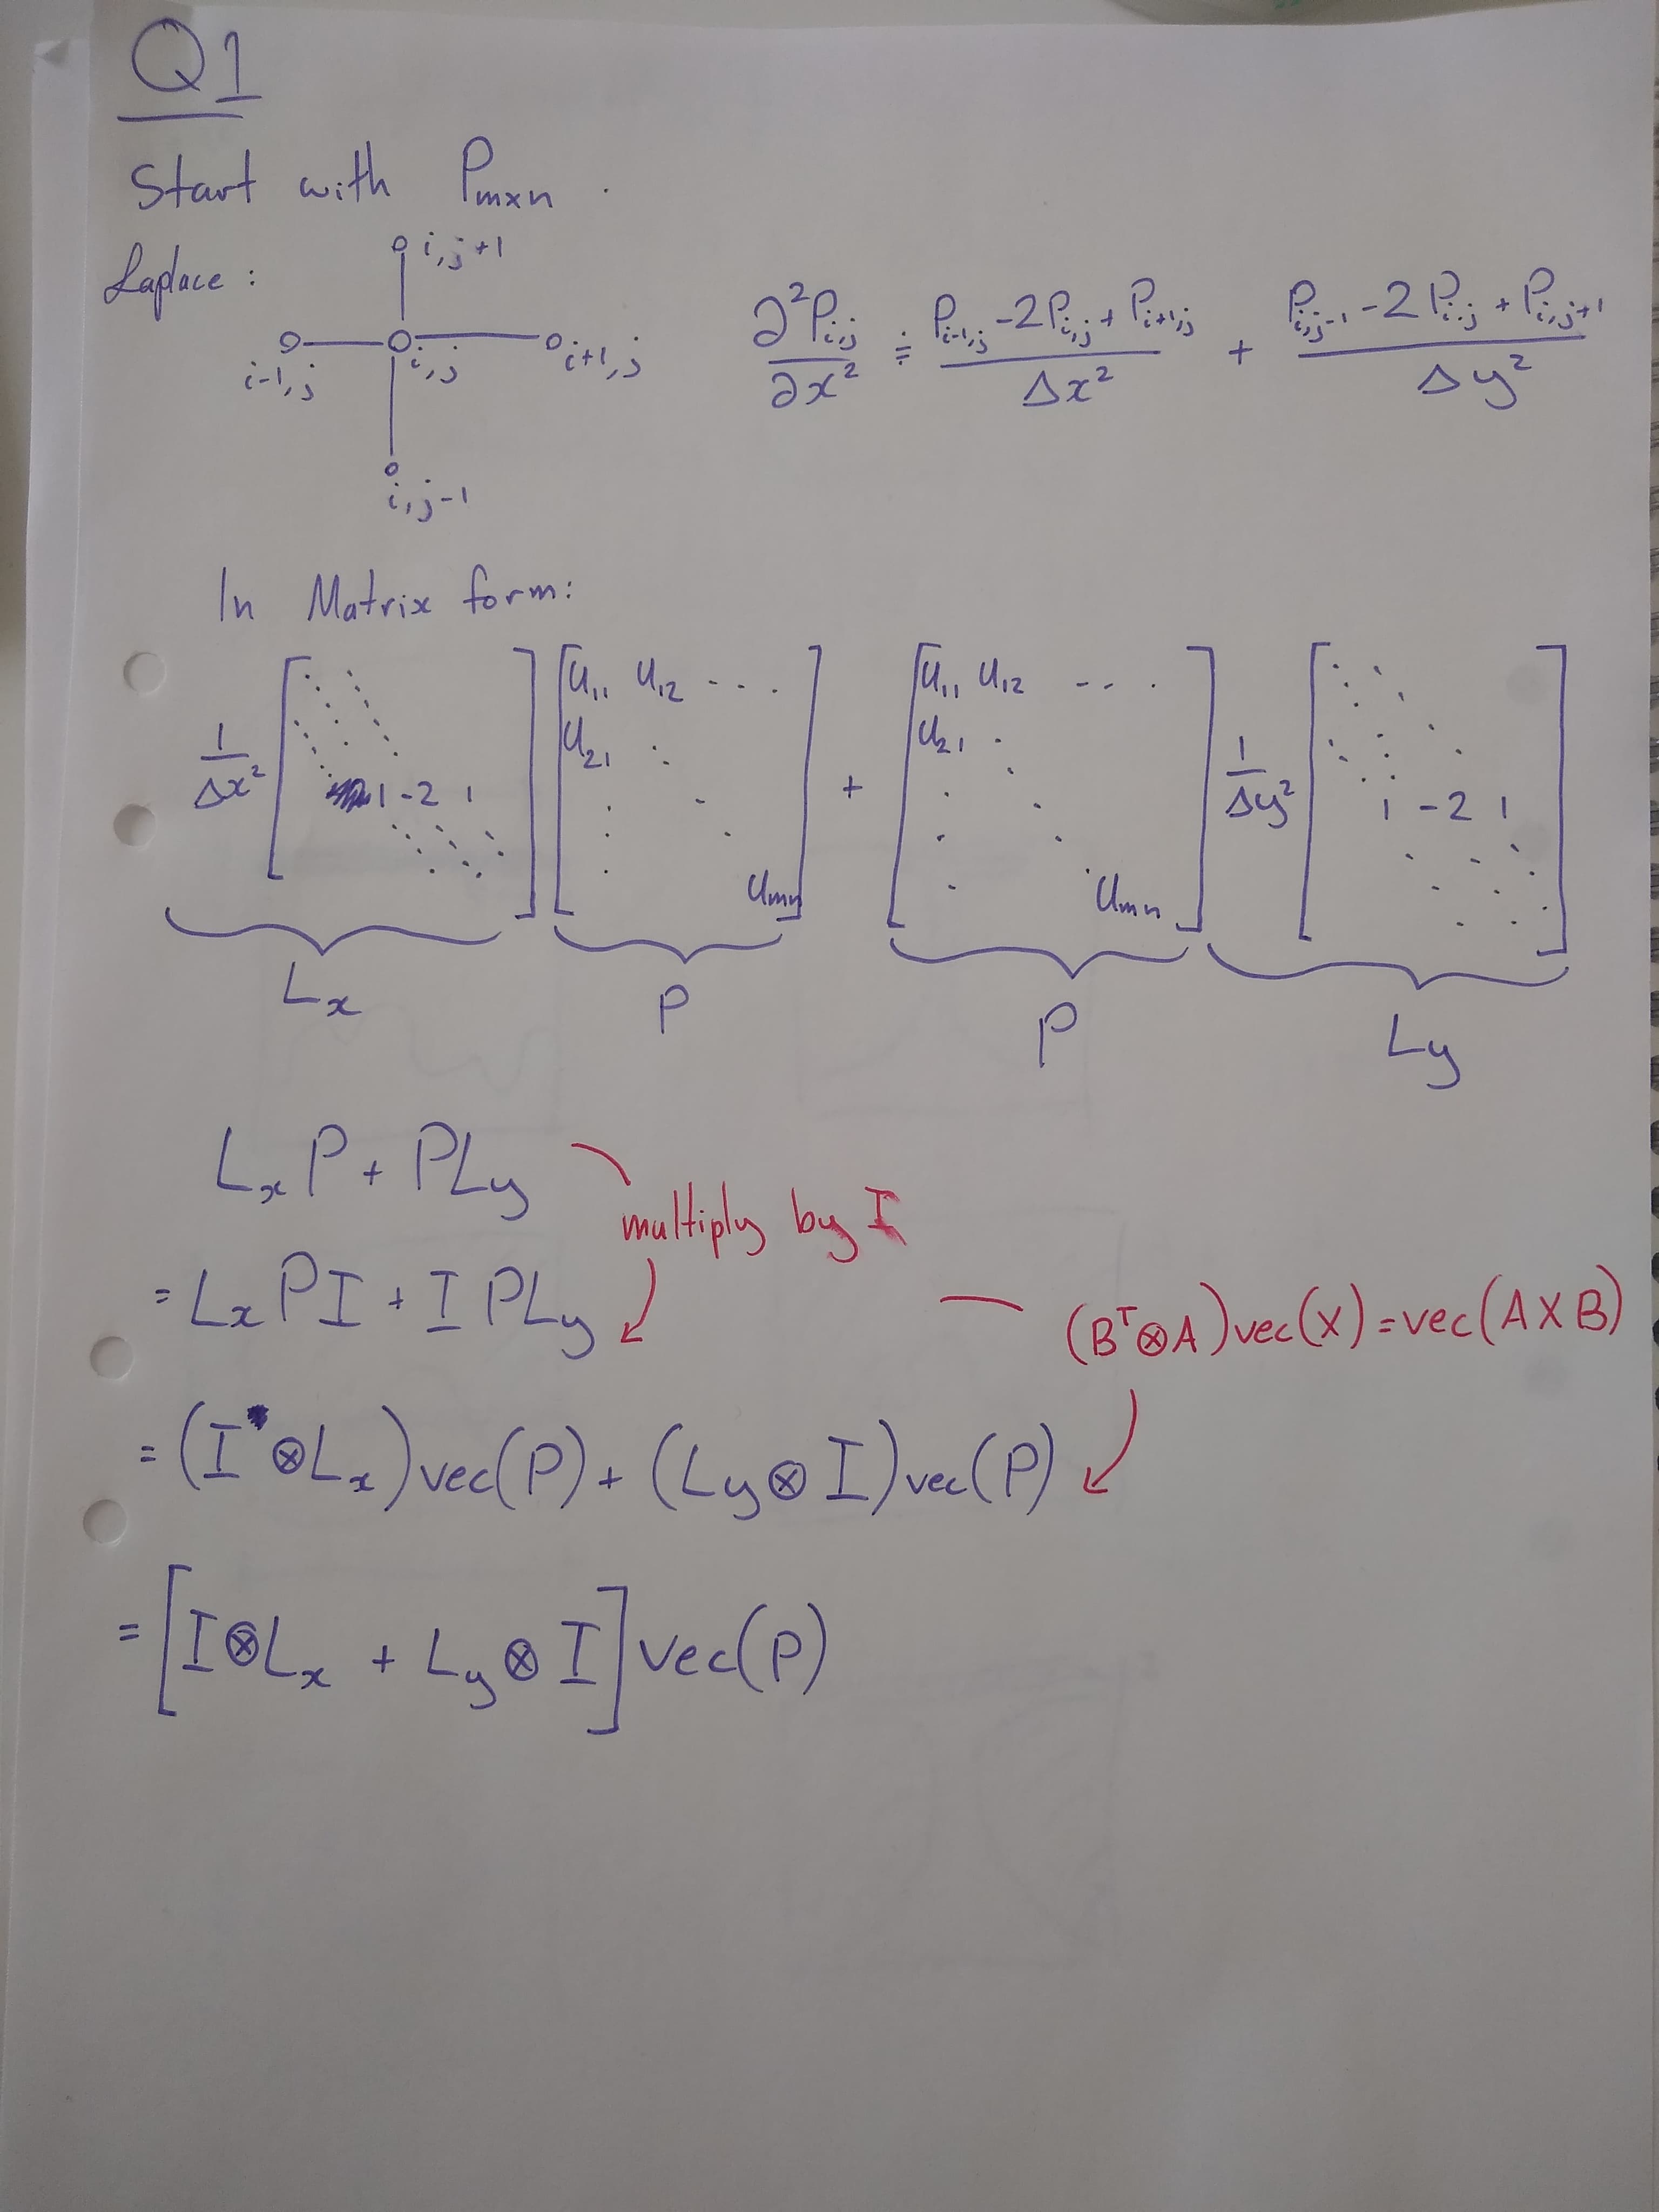 Q1
Start with P_{m×n}.
Laplace:
i,j+1
∂²P_{i,j}/∂x² ≐ (P_{i-1,j} - 2P_{i,j} + P_{i+1,j})/Δx² + (P_{i,j-1} - 2P_{i,j} + P_{i,j+1})/Δy²
i-1,j i,j i+1,j
i,j-1
In Matrix form:
1/Δx² [⋱ 1 -2 1 ⋱] [U₁₁ U₁₂ ... U₂₁ ⋱ U_{mn}] + [U₁₁ U₁₂ ... U₂₁ ⋱ U_{mn}] 1/Δy² [⋱ 1 -2 1 ⋱]
L_x P P L_y
L_x P + P L_y
multiply by I
= L_x P I + I P L_y
(Bᵀ⊗A)vec(X) = vec(AXB)
= (I ⊗ L_x) vec(P) + (L_y ⊗ I) vec(P)
= [I ⊗ L_x + L_y ⊗ I] vec(P)